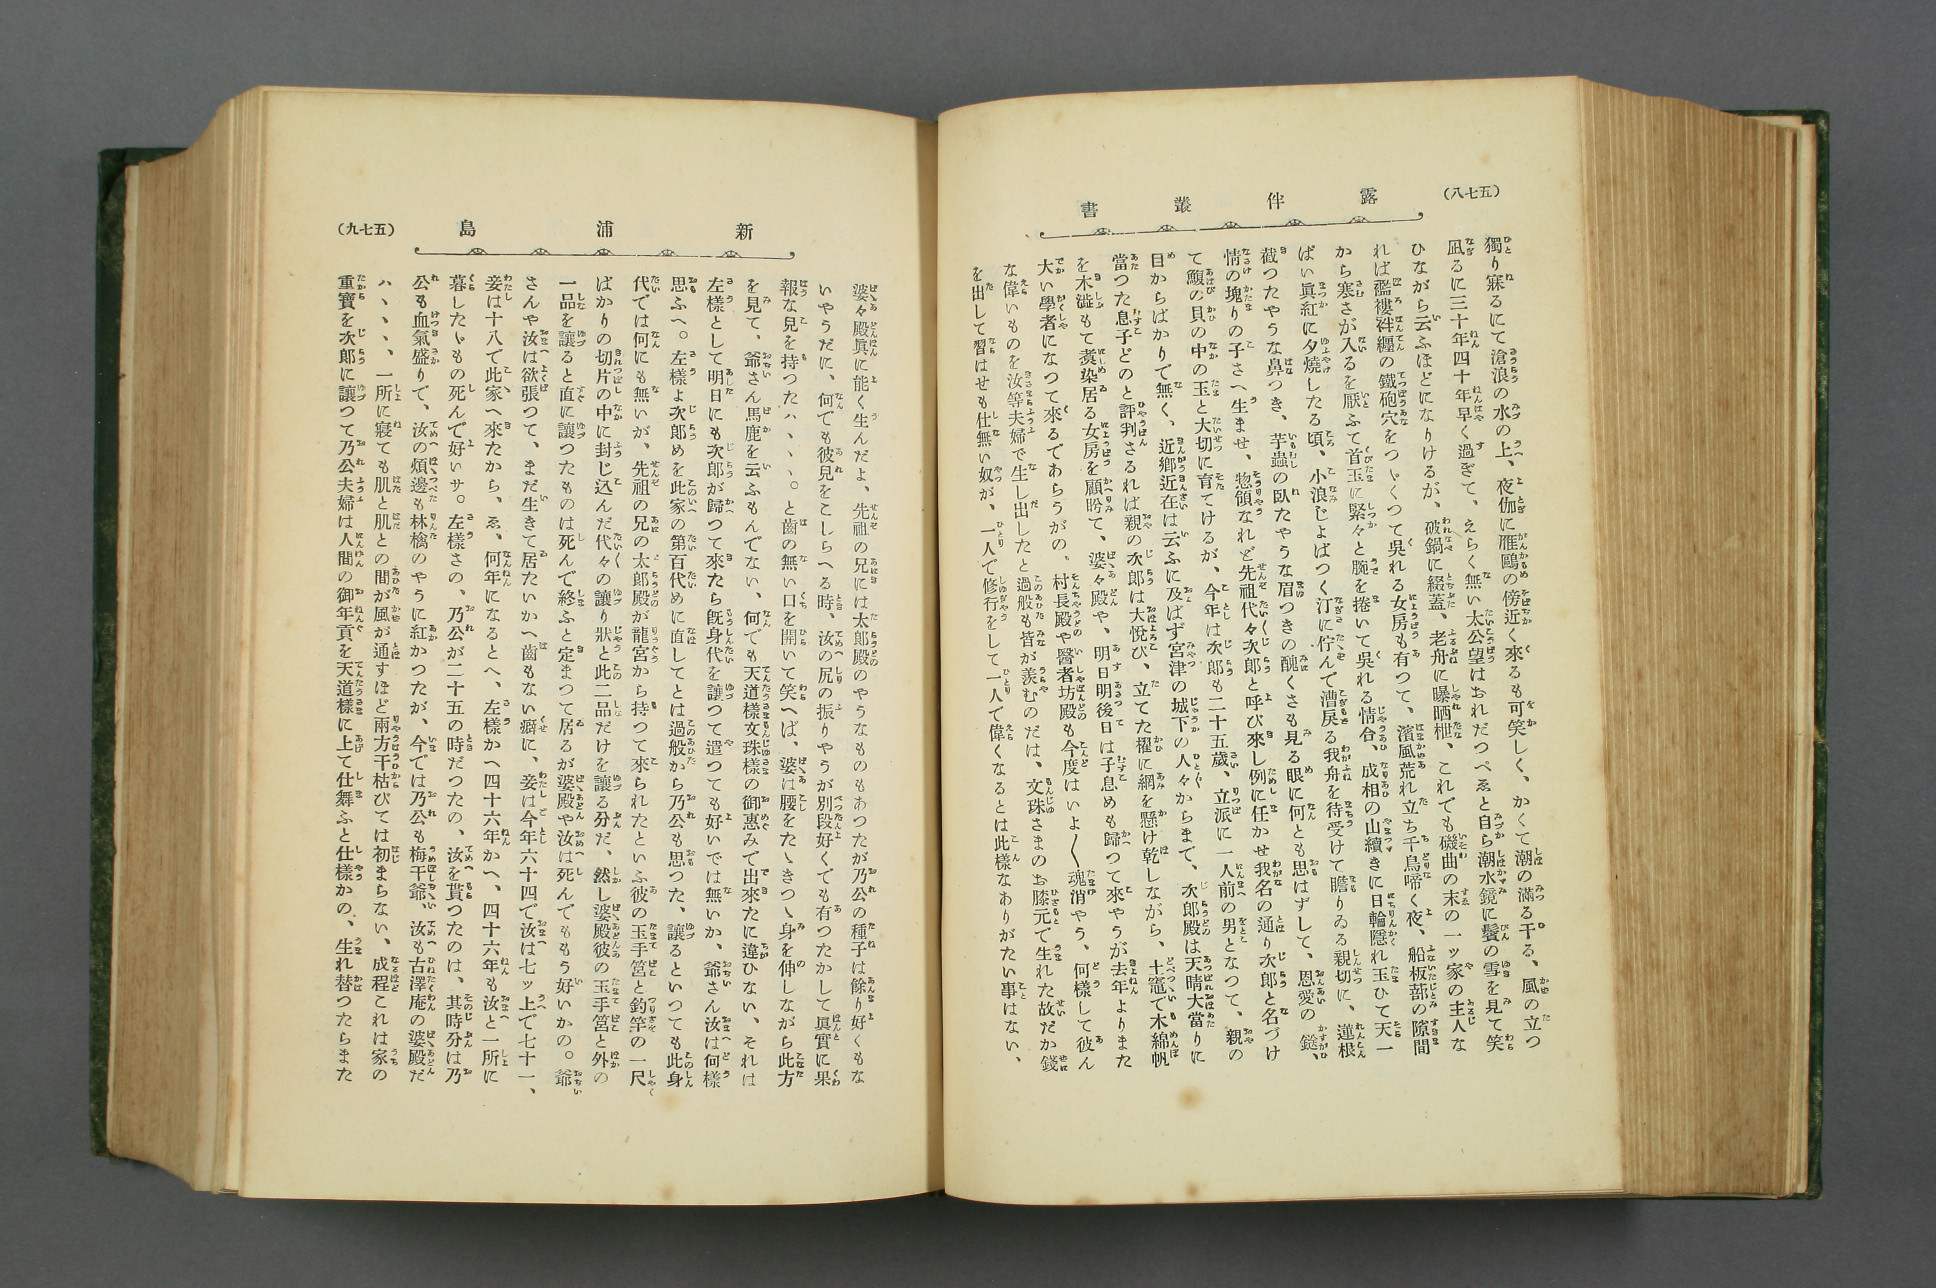 (八七五)
露伴叢書
獨り寐るにて滄浪の水の上、夜伽に雁鷗の傍近く來るも可笑しく、かくて潮の滿る干る、風の立つ
凪るに三十年四十年早く過ぎて、えらく無い太公望はおれだつぺゑと自ら潮水鏡に鬢の雪を見て笑
ひながら云ふほどになりけるが、破鍋に綴蓋、老舟に曝晒枻、これでも磯曲の末の一ッ家の主人な
れば襤褸袢纏の鐵砲穴をつゝくつて吳れる女房も有つて、濱風荒れ立ち千鳥啼く夜、船板蔀の隙間
から寒さが入るを厭ふて首玉に緊々と腕を捲いて吳れる情合、成相の山續きに日輪隱れ玉ひて天一
ぱい眞紅に夕燒したる頃、小浪じよばつく汀に佇んで漕戾る我舟を待受けて瞻りゐる親切に、蓮根
截つたやうな鼻つき、芋蟲の臥たやうな眉つきの醜くさも見る眼に何とも思はずして、恩愛の鎹、
情の塊りの子さへ生ませ、惣領なれど先祖代々次郎と呼び來し例に任かせ我名の通り次郎と名づけ
て鰒の貝の中の玉と大切に育てけるが、今年は次郎も二十五歲、立派に一人前の男となつて、親の
目からばかりで無く、近鄉近在は云ふに及ばず宮津の城下の人々からまで、次郎殿は天晴大當りに
當つた息子どのと評判さるれば親の次郎は大悅び、立てた櫂に網を懸け乾しながら、土竈で木綿帆
を木澁もて煑染居る女房を顧盻て、婆々殿や、明日明後日は子息めも歸つて來やうが去年よりまた
大い學者になつて來るであらうがの。村長殿や醫者坊殿も今度はいよ〳〵魂消やう、何樣して彼ん
な偉いものを汝等夫婦で生し出したと過般も皆が羨むのだは、文珠さまのお膝元で生れた故だか錢
を出して習はせも仕無い奴が、一人で修行をして一人で偉くなるとは此樣なありがたい事はない、
(九七五)
新浦島
婆々殿眞に能く生んだよ、先祖の兄には太郎殿のやうなものもあつたが乃公の種子は餘り好くもな
いやうだに、何でも彼兒をこしらへる時、汝の尻の振りやうが別段好くでも有つたかして眞實に果
報な兒を持つたハヽヽヽ。と齒の無い口を開いて笑へば、婆は腰をたゝきつゝ身を伸しながら此方
を見て、爺さん馬鹿を云ふもんでない、何でも天道樣文珠樣の御惠みで出來たに違ひない、それは
左樣として明日にも次郎が歸つて來たら旣身代を讓つて遣つても好いでは無いか、爺さん汝は何樣
思ふへ。左樣よ次郎めを此家の第百代めに直してとは過般から乃公も思つた、讓るといつても此身
代では何にも無いが、先祖の兄の太郎殿が龍宮から持つて來られたといふ彼の玉手筥と釣竿の一尺
ばかりの切片の中に封じ込んだ代々の讓り狀と此二品だけを讓る分だ、然し婆殿彼の玉手筥と外の
一品を讓ると直に讓つたものは死んで終ふと定まつて居るが婆殿や汝は死んでももう好いかの。爺
さんや汝は欲張つて、まだ生きて居たいかへ齒もない癖に、妾は今年六十四で汝は七ッ上で七十一、
妾は十八で此家へ來たから、ゑ、何年になるとへ、左樣かへ四十六年かへ、四十六年も汝と一所に
暮したしもの死んで好いサ。左樣さの、乃公が二十五の時だつたの、汝を貰つたのは、其時分は乃
公も血氣盛りで、汝の頰邊も林檎のやうに紅かつたが、今では乃公も梅干爺、汝も古澤庵の婆殿だ
ハヽヽヽ、一所に寢ても肌と肌との間が風が通すほど兩方干枯びては初まらない、成程これは家の
重寶を次郎に讓つて乃公夫婦は人間の御年貢を天道樣に上て仕舞ふと仕樣かの、生れ替つたらまた